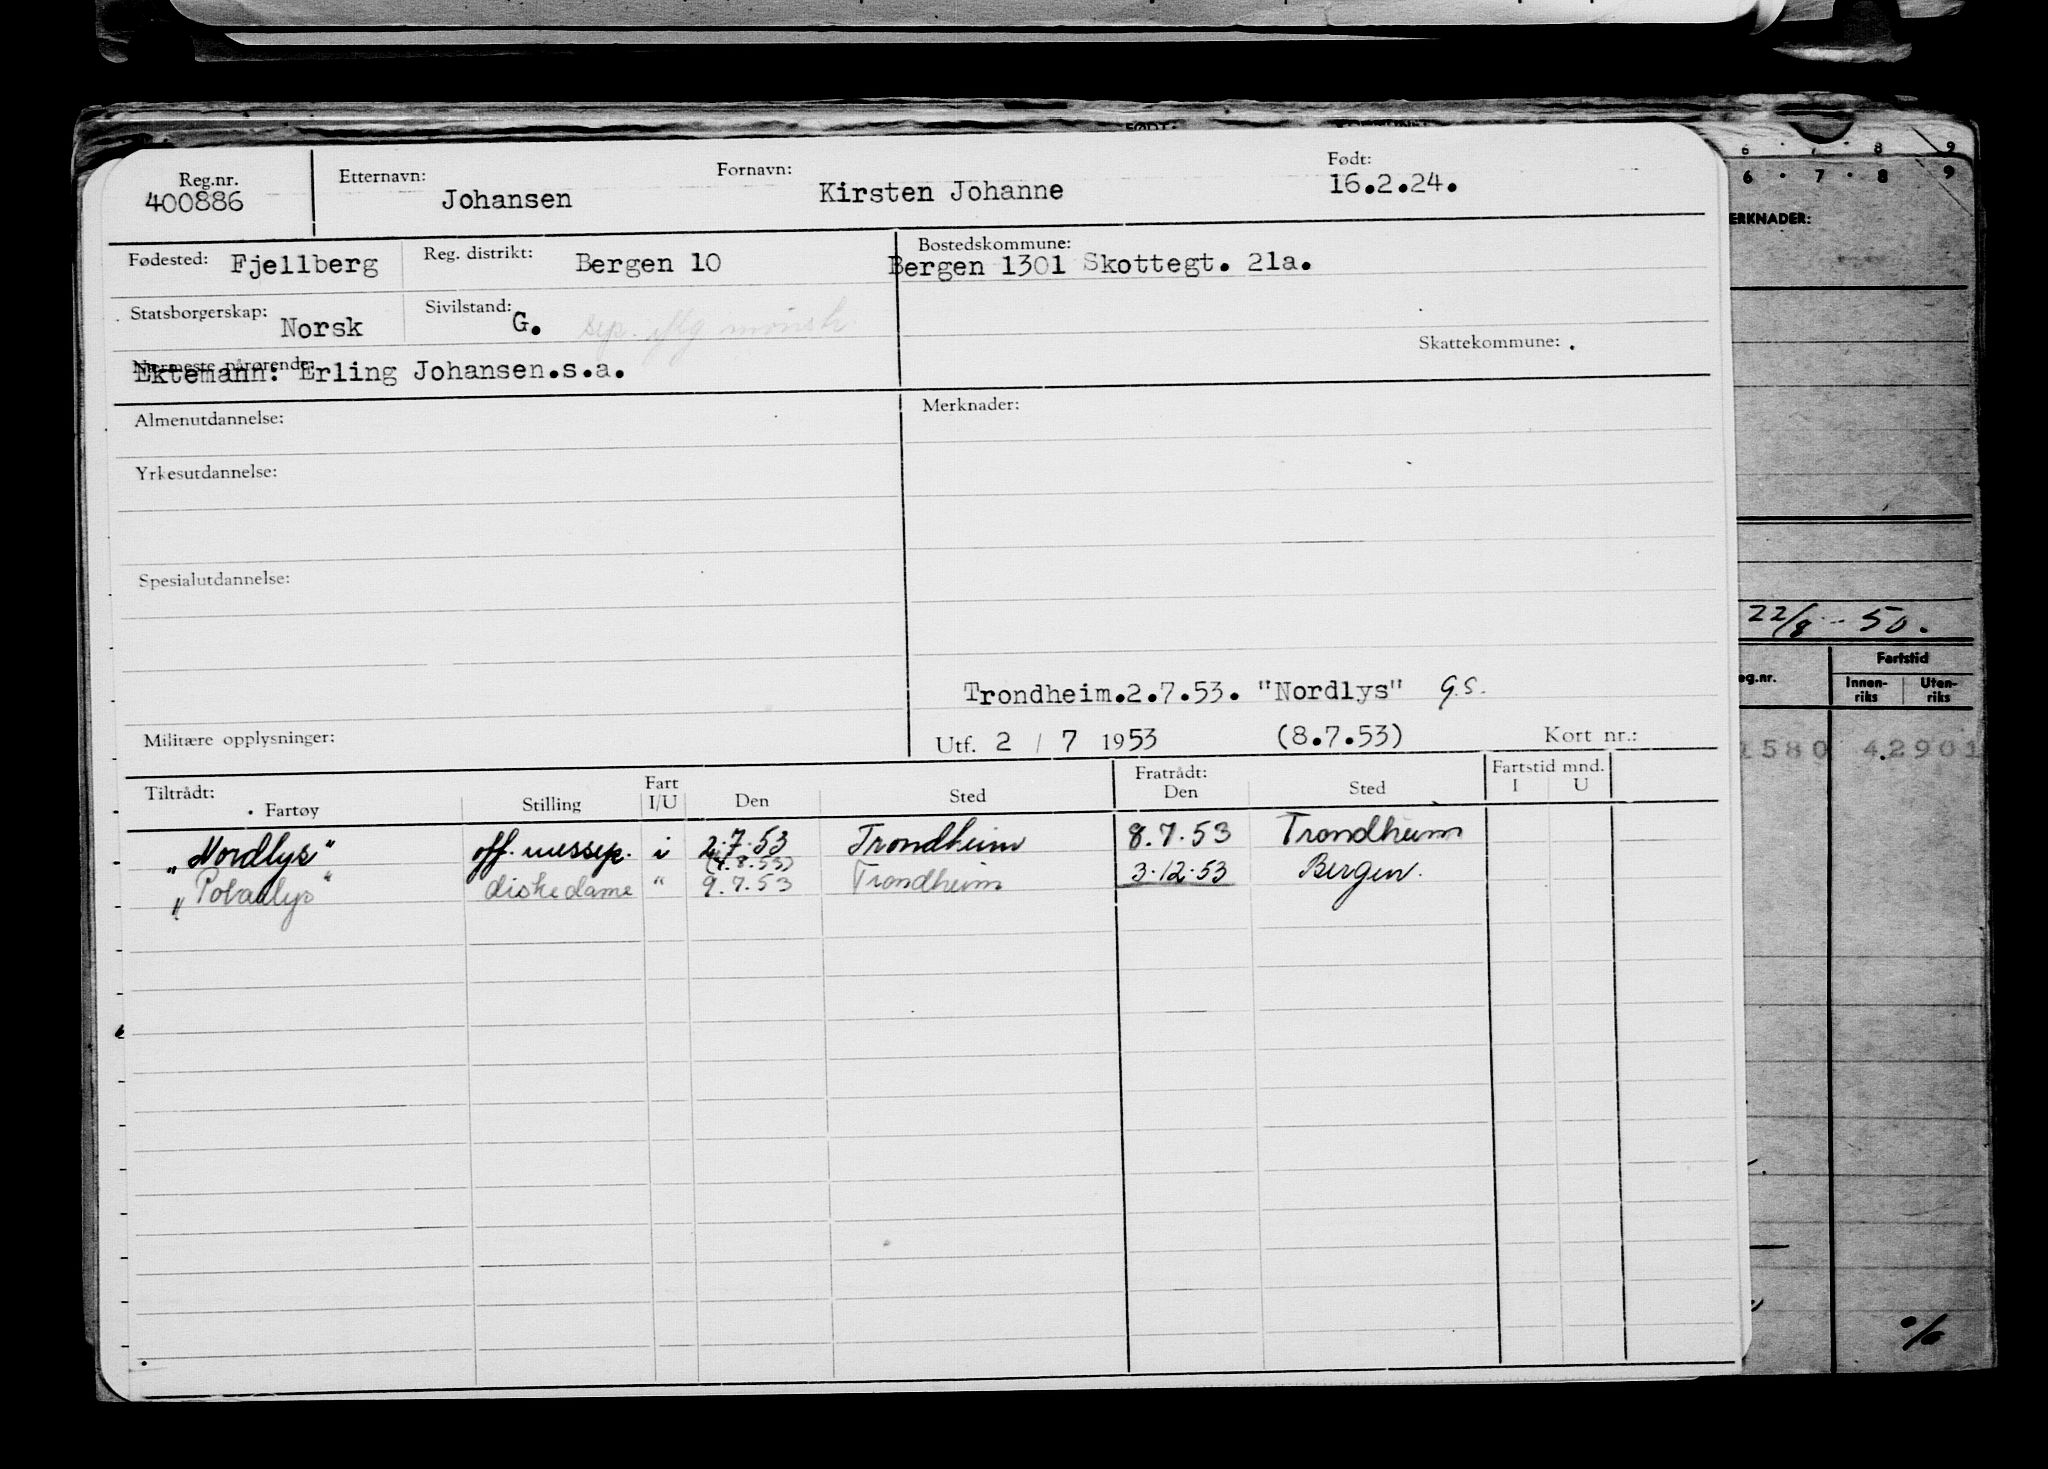 FØDT:
Reg.nr. Etternavn: Fornavn: Født:
400886 Johansen Kirsten Johanne 16.2.24.
Fødested: Fjellberg Reg. distrikt: Bergen 10 Bostedskommune:
Bergen 1301 Skottegt. 21a.
Statsborgerskap: Norsk Sivilstand: G. sep. iflg mønstr.
Skattekommune: .
Nærmeste pårørende:
Ektemann: Erling Johansen.s.a.
Almenutdannelse: Merknader:
Yrkesutdannelse:
Spesialutdannelse:
Trondheim.2.7.53. "Nordlys" G.S.
Militære opplysninger: Utf. 2 / 7 1953 (8.7.53) Kort nr.:
Tiltrådt: Fart Fratrådt: Fartstid mnd.
Fartøy Stilling I/U Den Sted Den Sted I U
"Nordlys" off. messep. i 2.7.53 Trondheim 8.7.53 Trondheim
"Polarlys" diskedame " 9.7.53 Trondheim 3.12.53 Bergen.
6 . 7 . 8 9
6 . 7 . 8 9
ERKNADER:
22/8 - 50.
Fartstid
og.nr. Innen-
riks Uten-
riks
1580 42901
%